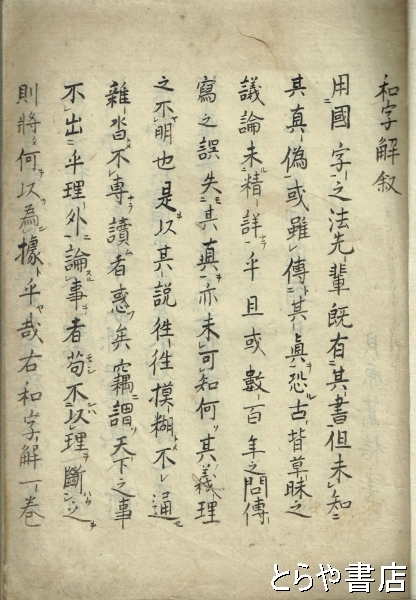 和字解叙
用國字之法先輩既有其書但未知
其真偽或雖傳其眞恐古昔草昧之
議論未精詳乎且或數百年之間傳
寫之誤失其眞亦未可知何其義理
之不明也是以其説往往摸糊不通
雜沓不專讀者惑矣竊謂天下之事
不出乎理外論事者苟不以理斷之
則將何以為據乎哉右和字解一巻
とらや書店